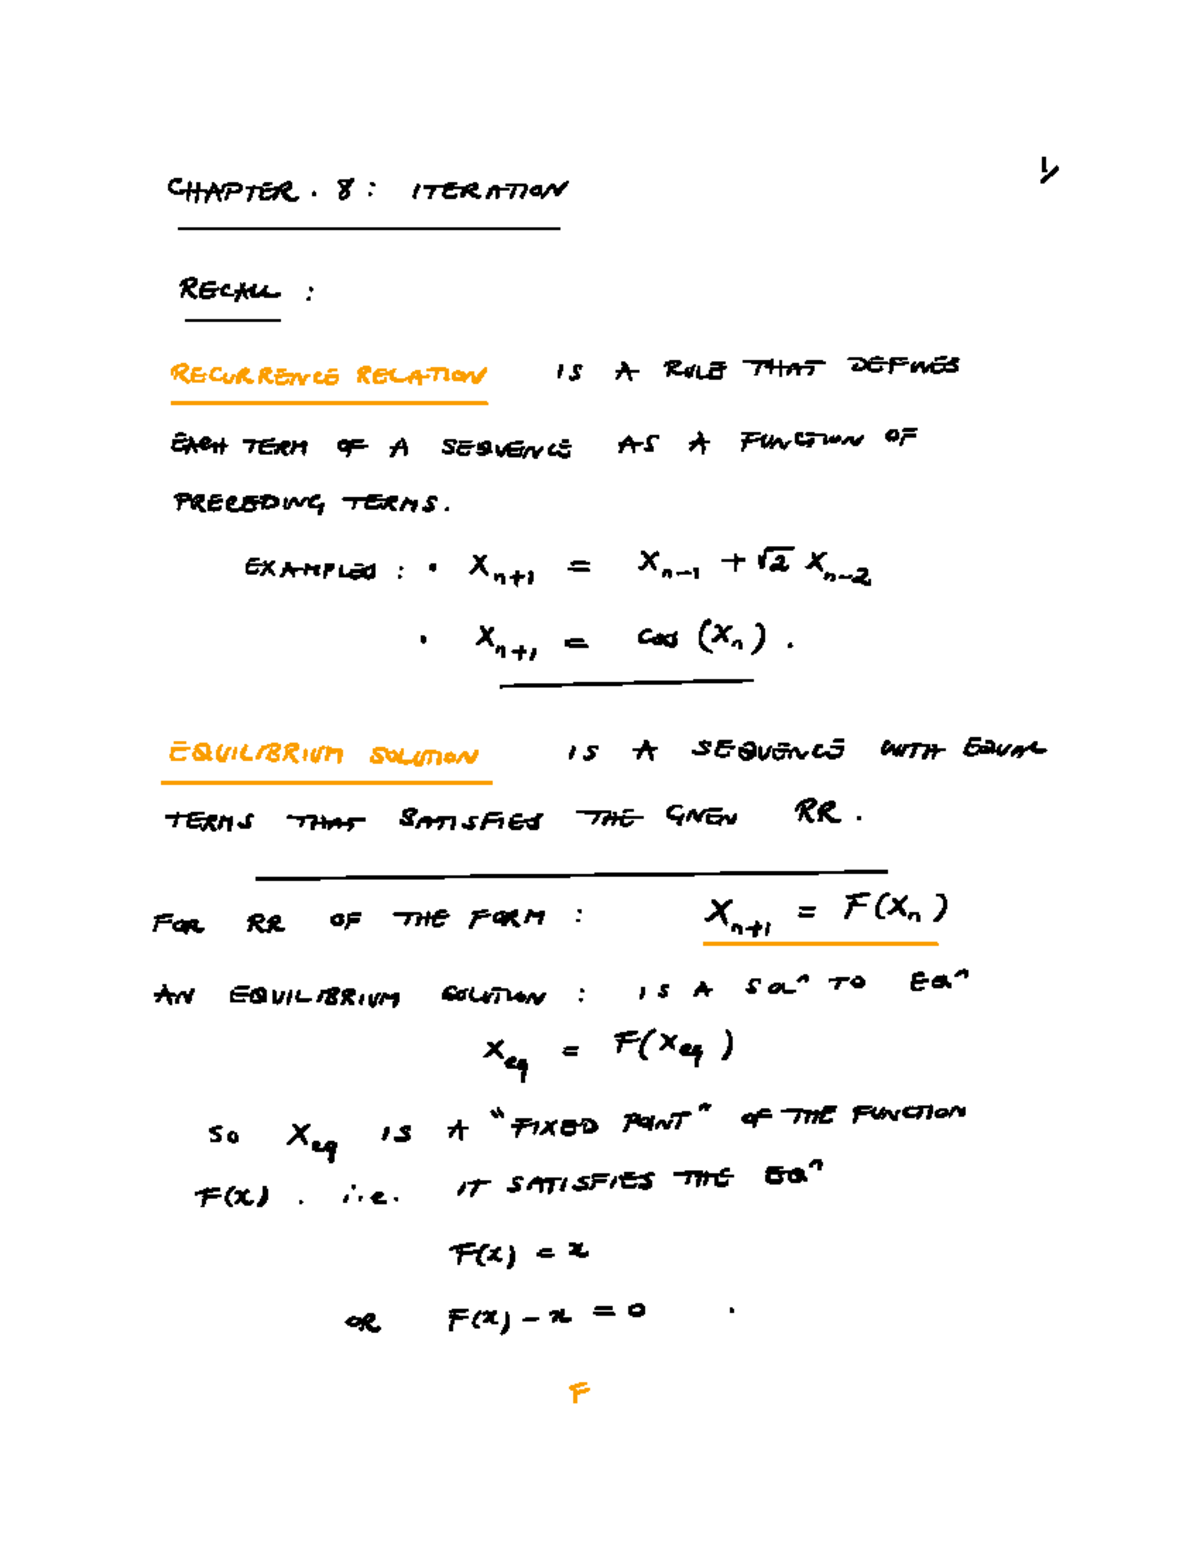 1/
CHAPTER. 8: ITERATION
RECALL :
RECURRENCE RELATION IS A RULE THAT DEFINES
EACH TERM OF A SEQUENCE AS A FUNCTION OF
PRECEDING TERMS.
EXAMPLES : • Xₙ₊₁ = Xₙ₋₁ + √2 Xₙ₋₂
• Xₙ₊₁ = cos (Xₙ) .
EQUILIBRIUM SOLUTION IS A SEQUENCE WITH EQUAL
TERMS THAT SATISFIES THE GIVEN RR .
FOR RR OF THE FORM : Xₙ₊₁ = F(Xₙ)
AN EQUILIBRIUM SOLUTION : IS A SOLⁿ TO EQⁿ
X_eq = F(X_eq)
SO X_eq IS A "FIXED POINT" OF THE FUNCTION
F(x) . i.e. IT SATISFIES THE EQⁿ
F(x) = x
OR F(x) - x = 0 .
F